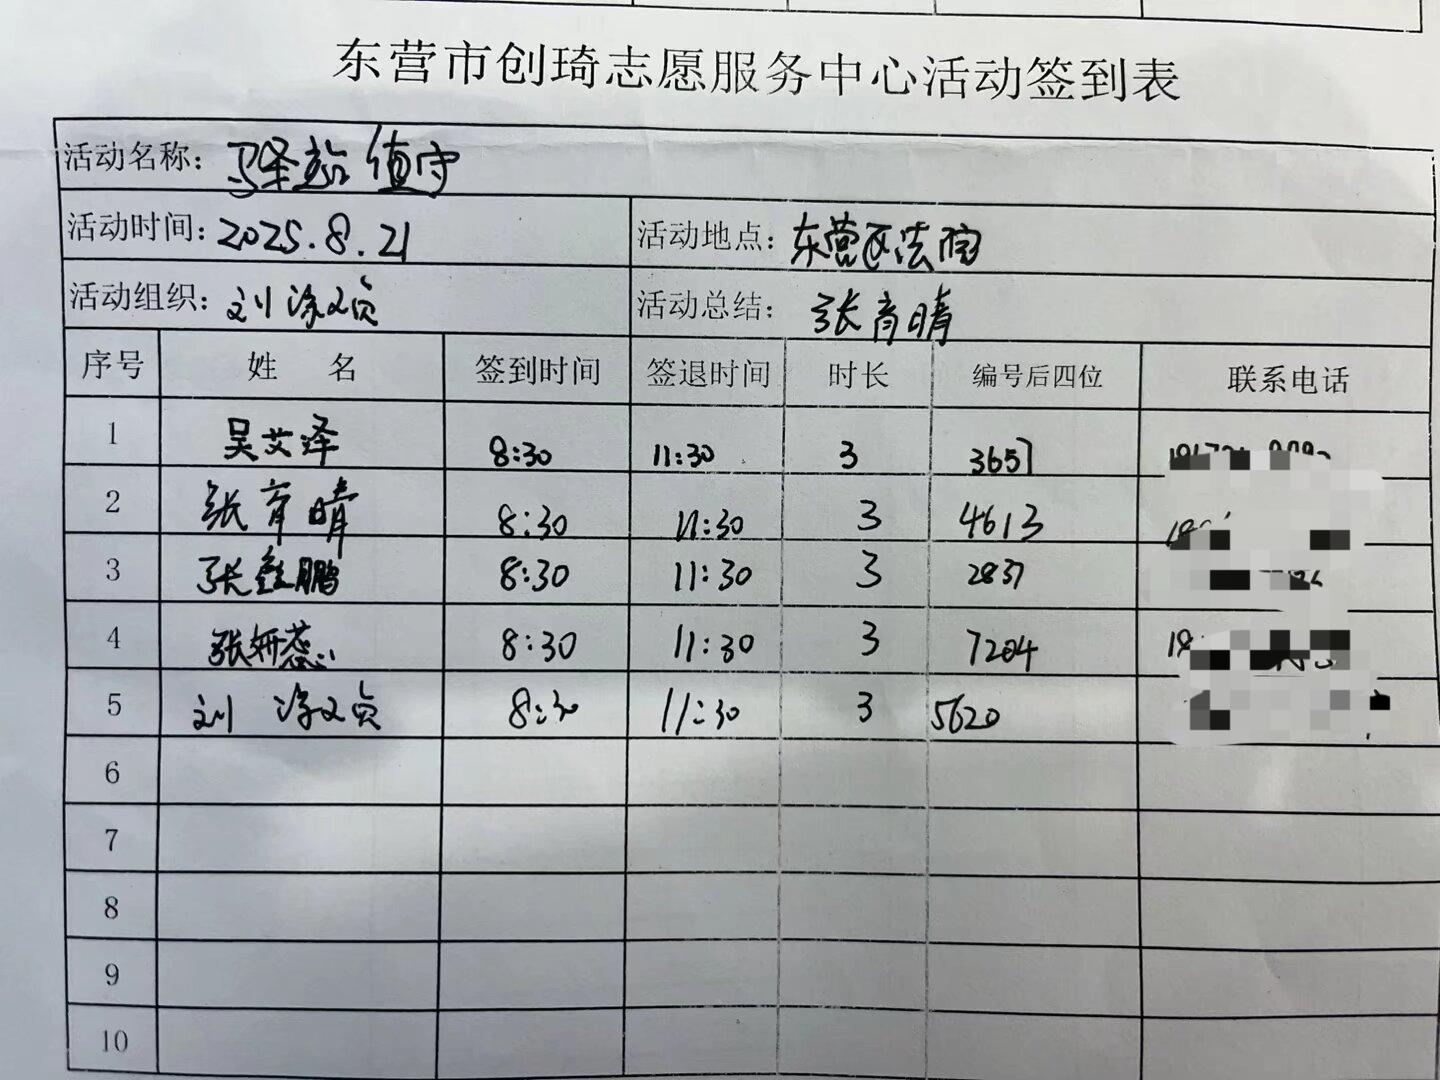 东营市创琦志愿服务中心活动签到表
活动名称：驿站值守
活动时间：2025.8.21 活动地点：东营区法院
活动组织：刘淤贞 活动总结：张育晴
序号 姓 名 签到时间 签退时间 时长 编号后四位 联系电话
1 吴艾泽 8:30 11:30 3 3657
2 张育晴 8:30 11:30 3 4613
3 张鹏 8:30 11:30 3 2837
4 张妍蕊 8:30 11:30 3 7204
5 刘 贞 8:30 11:30 3 5620
6
7
8
9
10